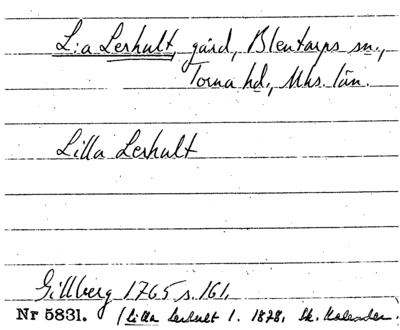 L:a Lershult, gård, Blentarps sn.,
Torna hd., Mhs. län.
Lilla Lershult
Gillberg 1765 s. 161.
Nr 5831. (Lilla Lershult 1. 1828, Sk. Kalender.